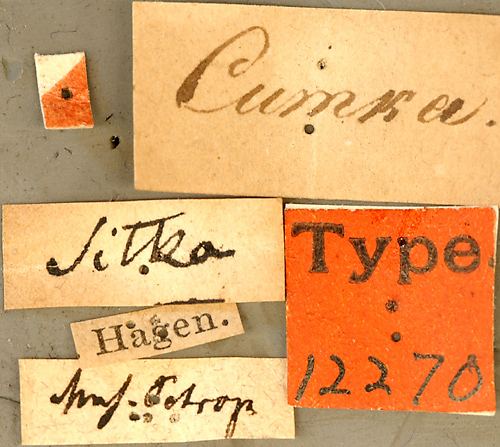 Ситка.
Sitka
Type.
12270
Hagen.
Mus. Petrop